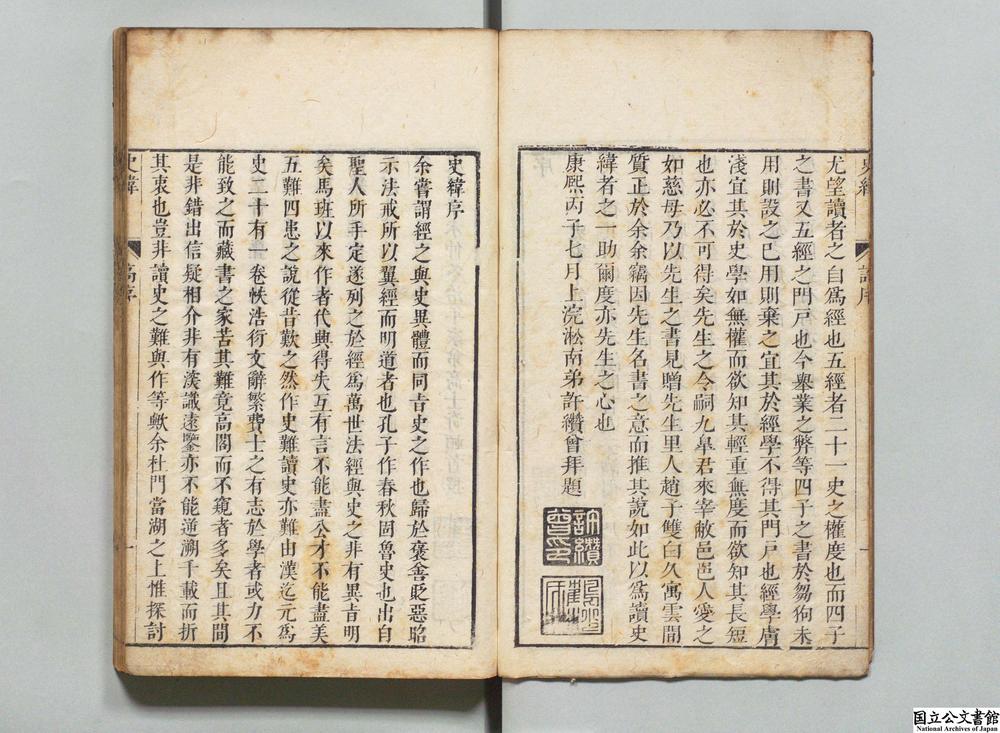 尤望讀者之自為經也五經者二十一史之權度也而四子
之書又五經之門戸也今舉業之弊等四子之書於芻狗未
用則設之已用則棄之宜其於經學不得其門戸也經學膚
淺宜其於史學如無權而欲知其輕重無度而欲知其長短
也亦必不可得矣先生之令嗣九臯君來宰敝邑邑人愛之
如慈母乃以先生之書見贈先生里人趙子雙白久寓雲間
質正於余余竊因先生名書之意而推其說如此以為讀史
緯者之一助爾度亦先生之心也
康熙丙子七月上浣淞南弟許纘曾拜題
許纘曾印
史緯序
余嘗謂經之與史異體而同吉史之作也歸於褒善貶惡昭
示法戒所以翼經而明道者也孔子作春秋固魯史也出自
聖人所手定遂列之於經為萬世法經與史之非有異昔明
矣馬班以來作者代興得失互有言不能盡公才不能盡美
五難四患之說從昔歎之然作史難讀史亦難由漢迄元為
史二十有一卷帙浩衍文辭繁費士之有志於學者或力不
能致之而藏書之家苦其難竟高閣而不窺者多矣且其間
是非錯出信疑相介非有深識遠鑒亦不能逆溯千載而折
其衷也豈非讀史之難與作等歟余杜門當湖之上惟探討
史緯
高序
一
国立公文書館
National Archives of Japan